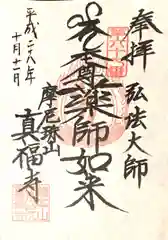 奉拝
弘法大師
本尊薬師如来
摩尼珠山
真福寺
平成二十八年
十月十二日